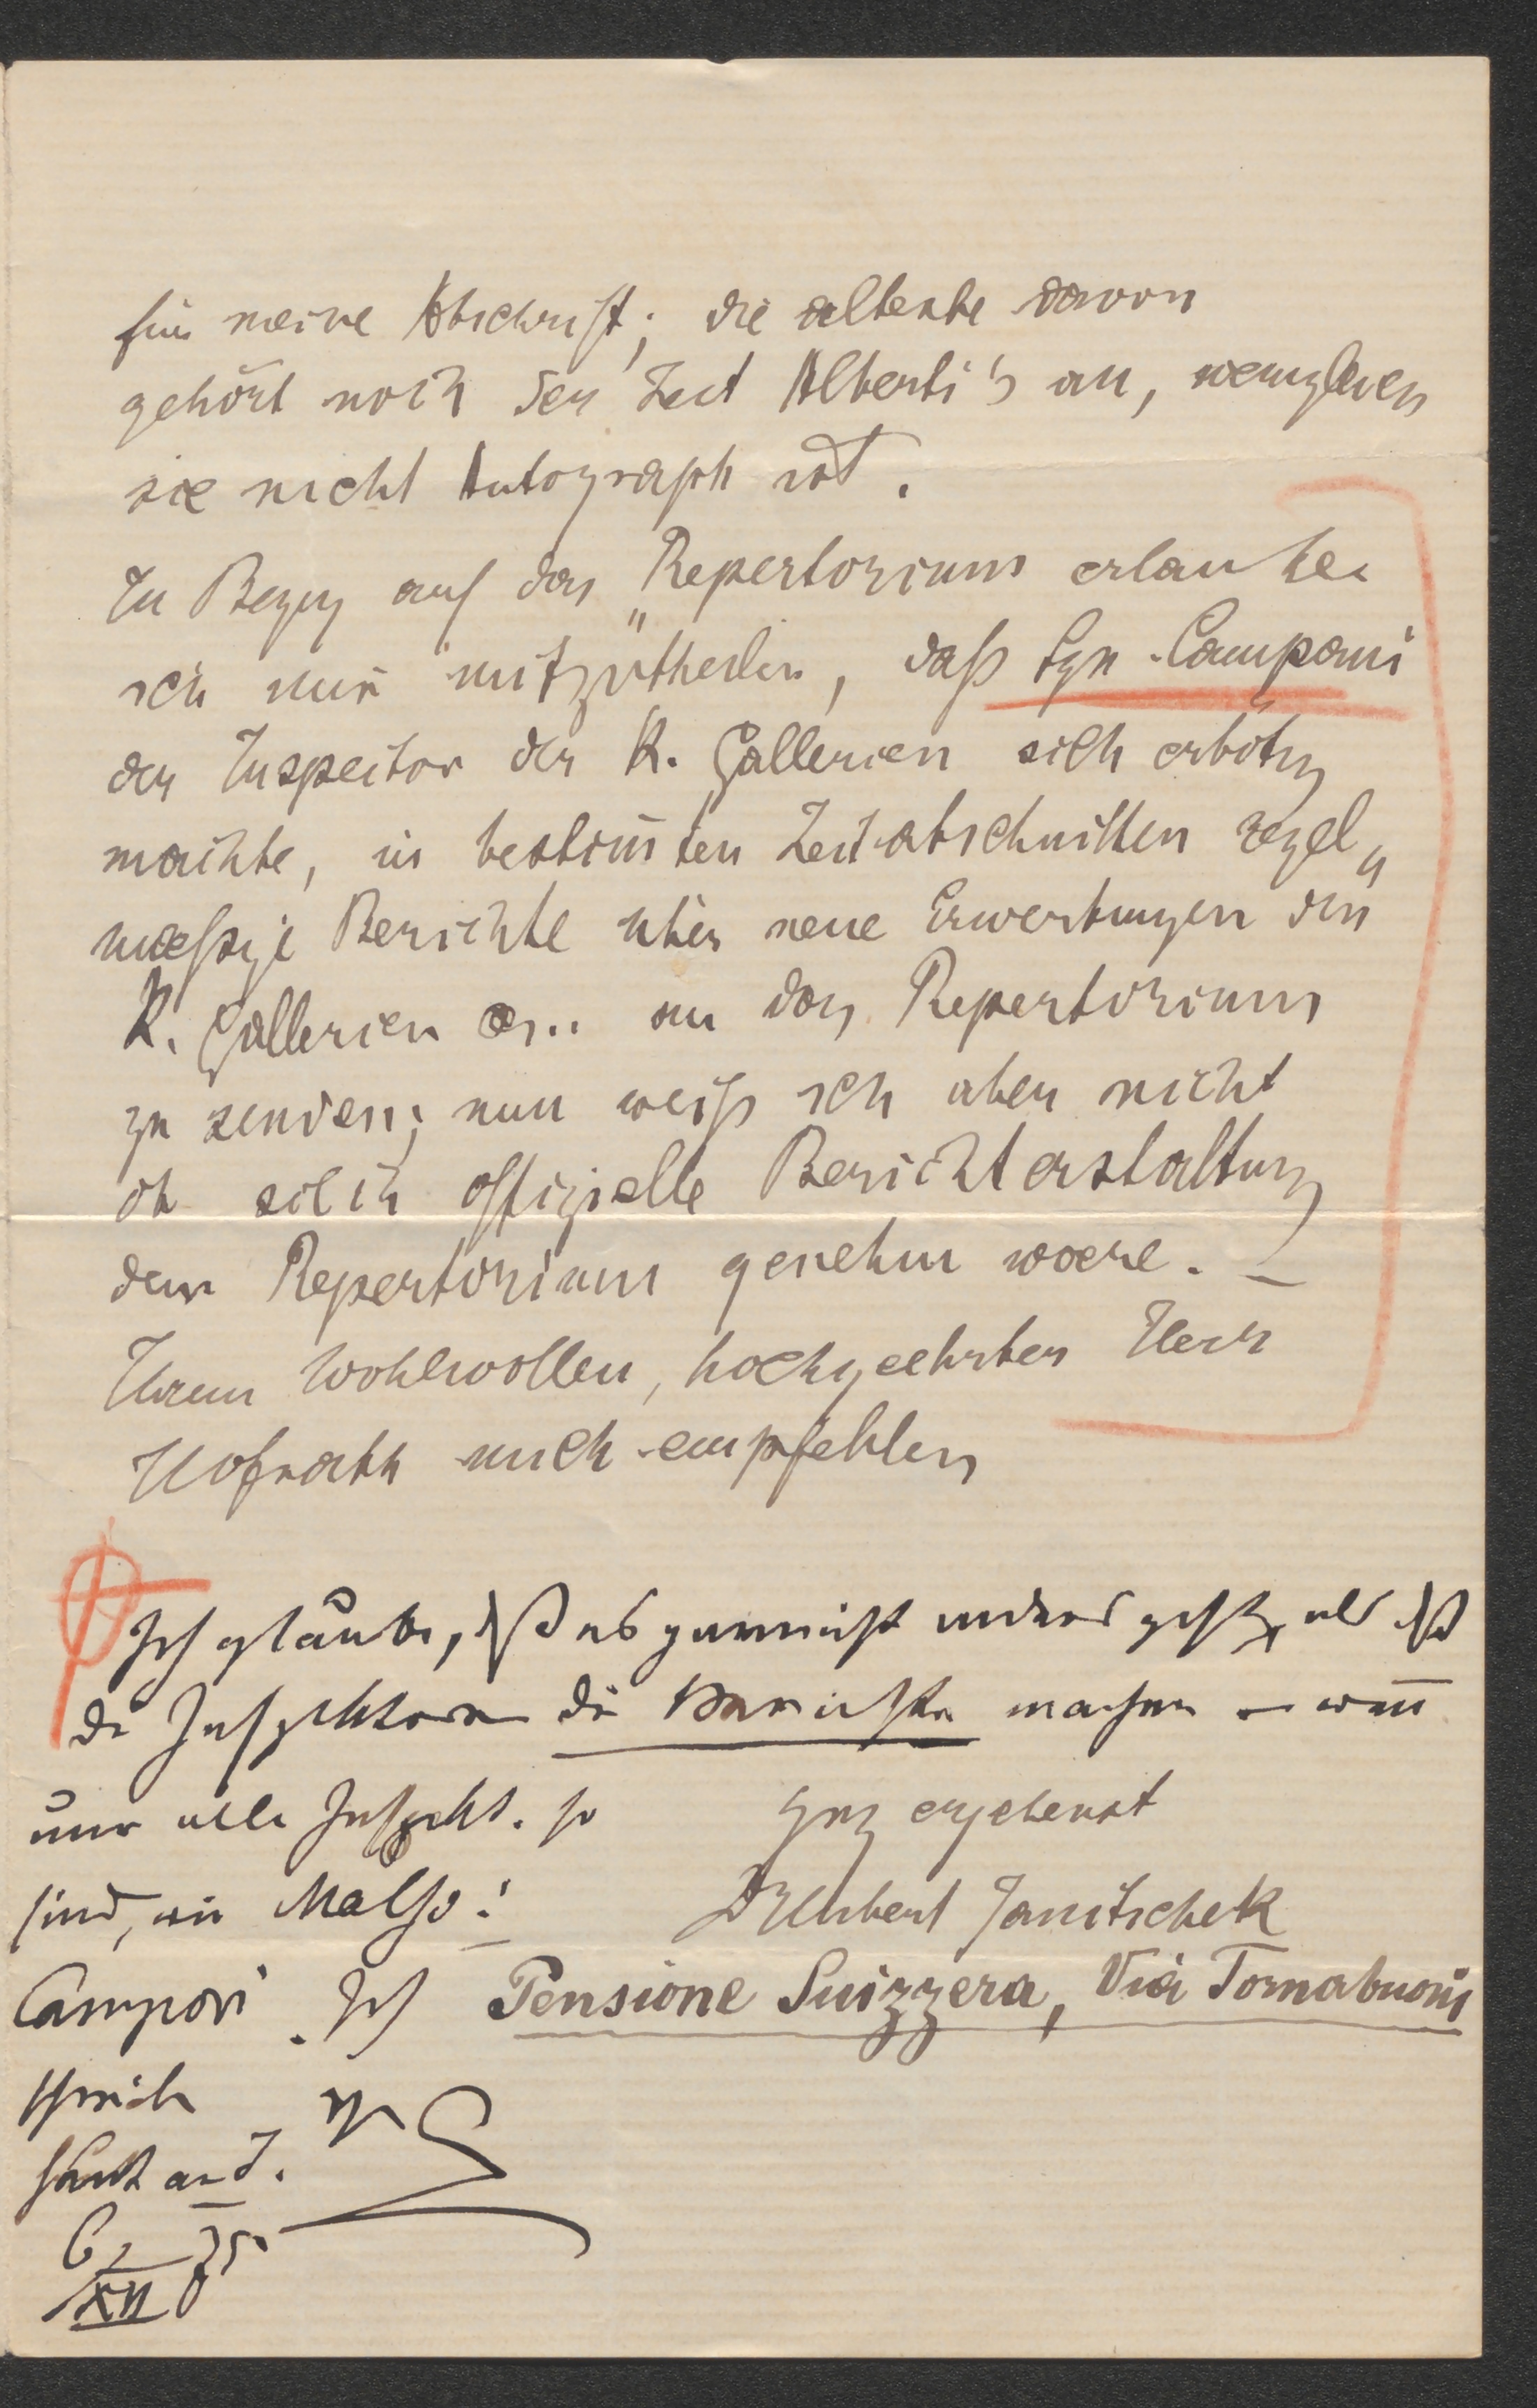 für meine Abschrift; die älteste davon
gehört noch der Zeit Alberti's an, wenngleich
sie nicht Autograph ist.
In Bezug auf das „Repertorium erlaube
ich mir mitzutheilen, daß Sgn. Campani
der Inspector der K. Gallerien sich erbötig
machte, in bestim̄ten Zeitabschnitten regel„
mæßige Berichte über neue Erwerbungen der
K. Gallerien an das Repertorium
zu senden; nun weiß ich aber nicht
ob solch offizielle Berichterstattung
dem Repertorium genehm wære. —
Ihrem Wohlwollen, hochgeehrter Herr
Hofrath mich empfehlend
Ich glaube, daß es gar nicht anders geht, als daß
die Inspektoren die Berichte machen – wen̄
nur alle Inspekt. so
sind, wie Malſs!
Campori. Ich
schreibe
ganz ergebenst
D Hubert Janitschek
Pensione Suizzera, Via Tornabuoni
6/XII 75